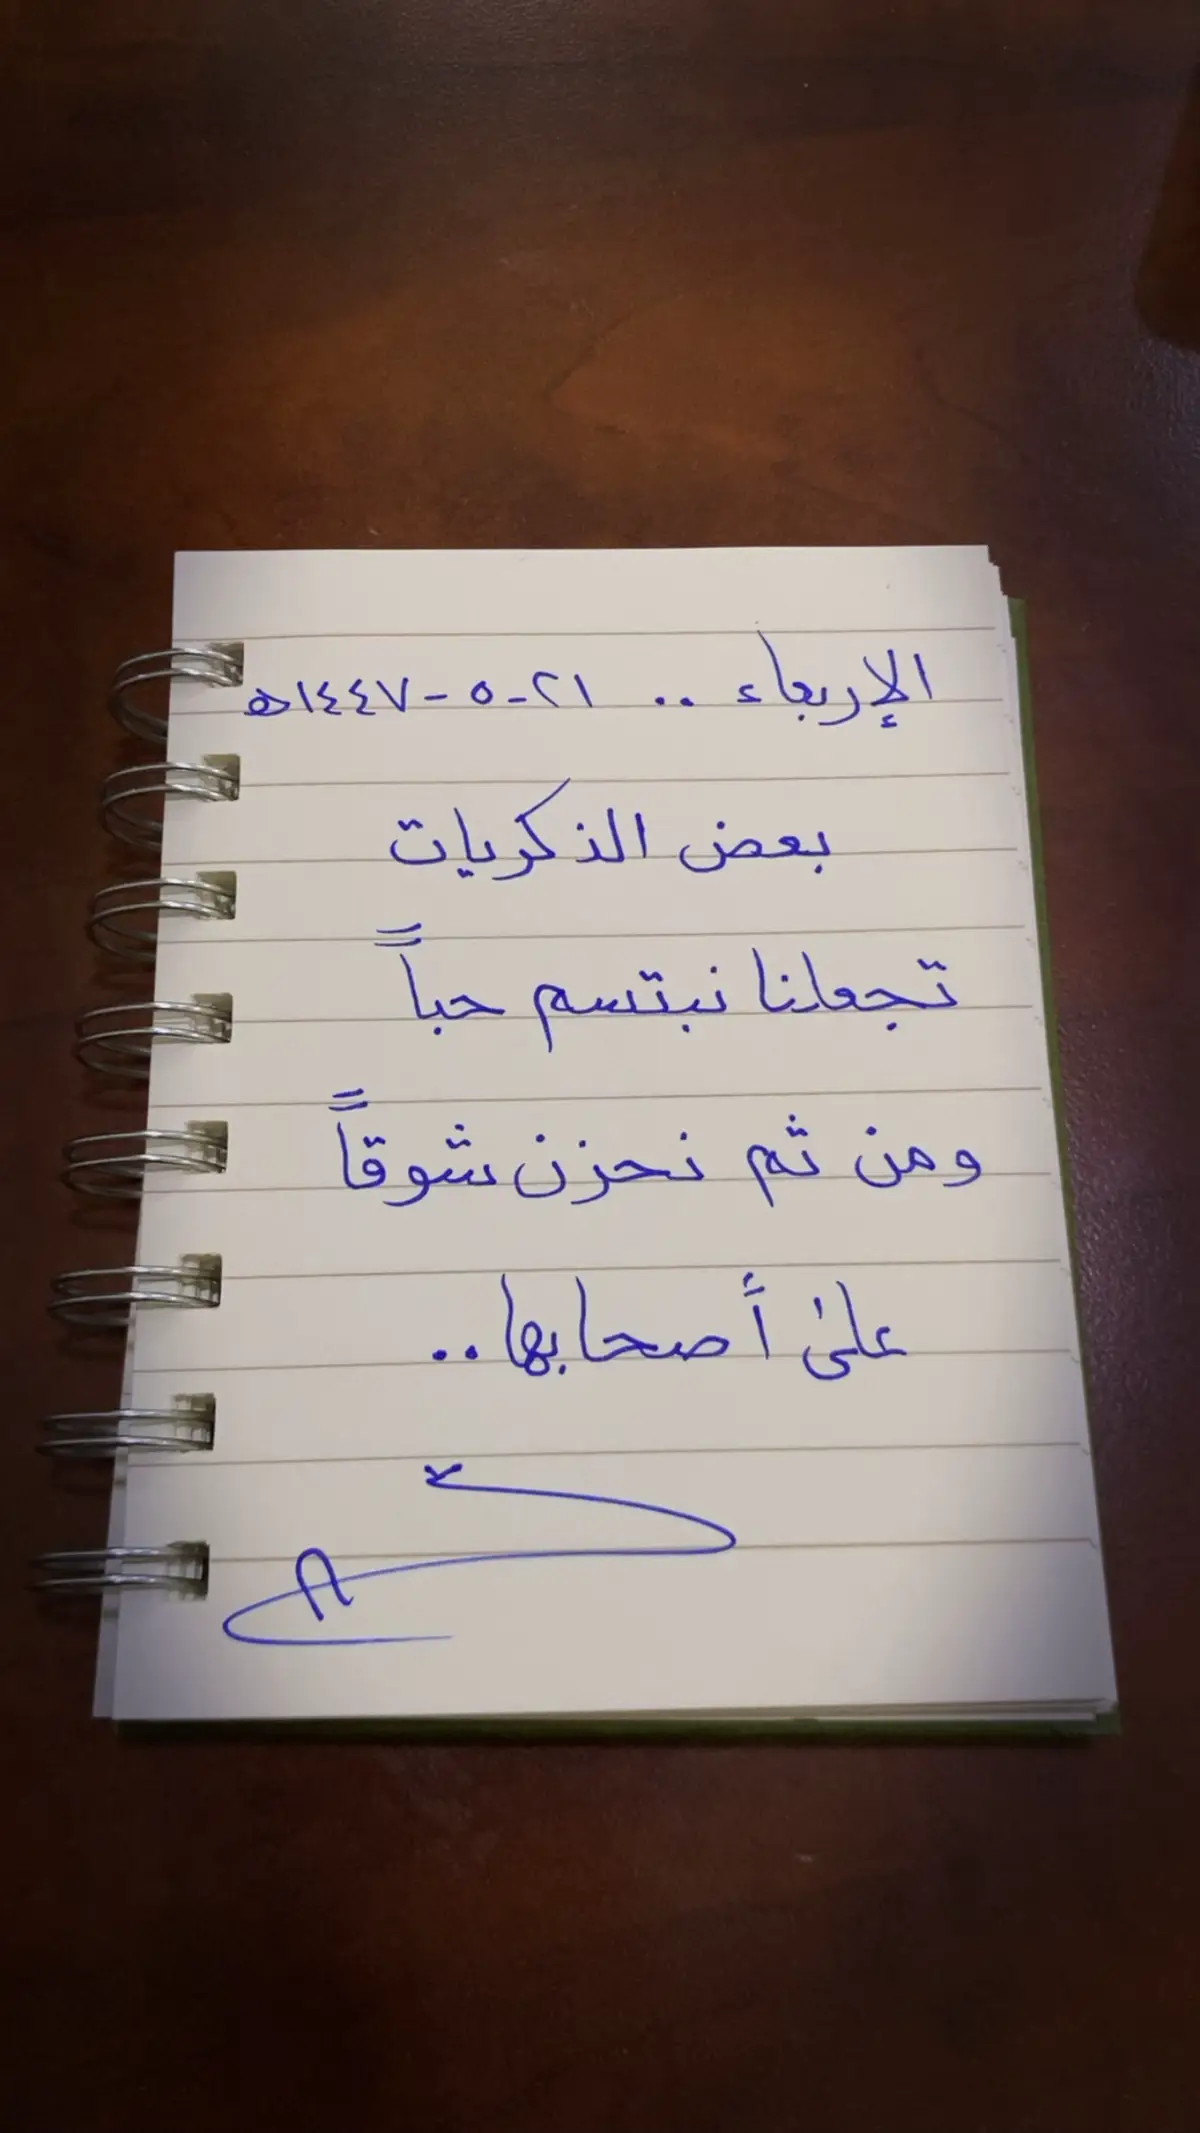 الإربعاء .. ٢١-٥-١٤٤٧ه
بعض الذكريات
تجعلنا نبتسم حباً
ومن ثم نحزن شوقاً
على أصحابها..